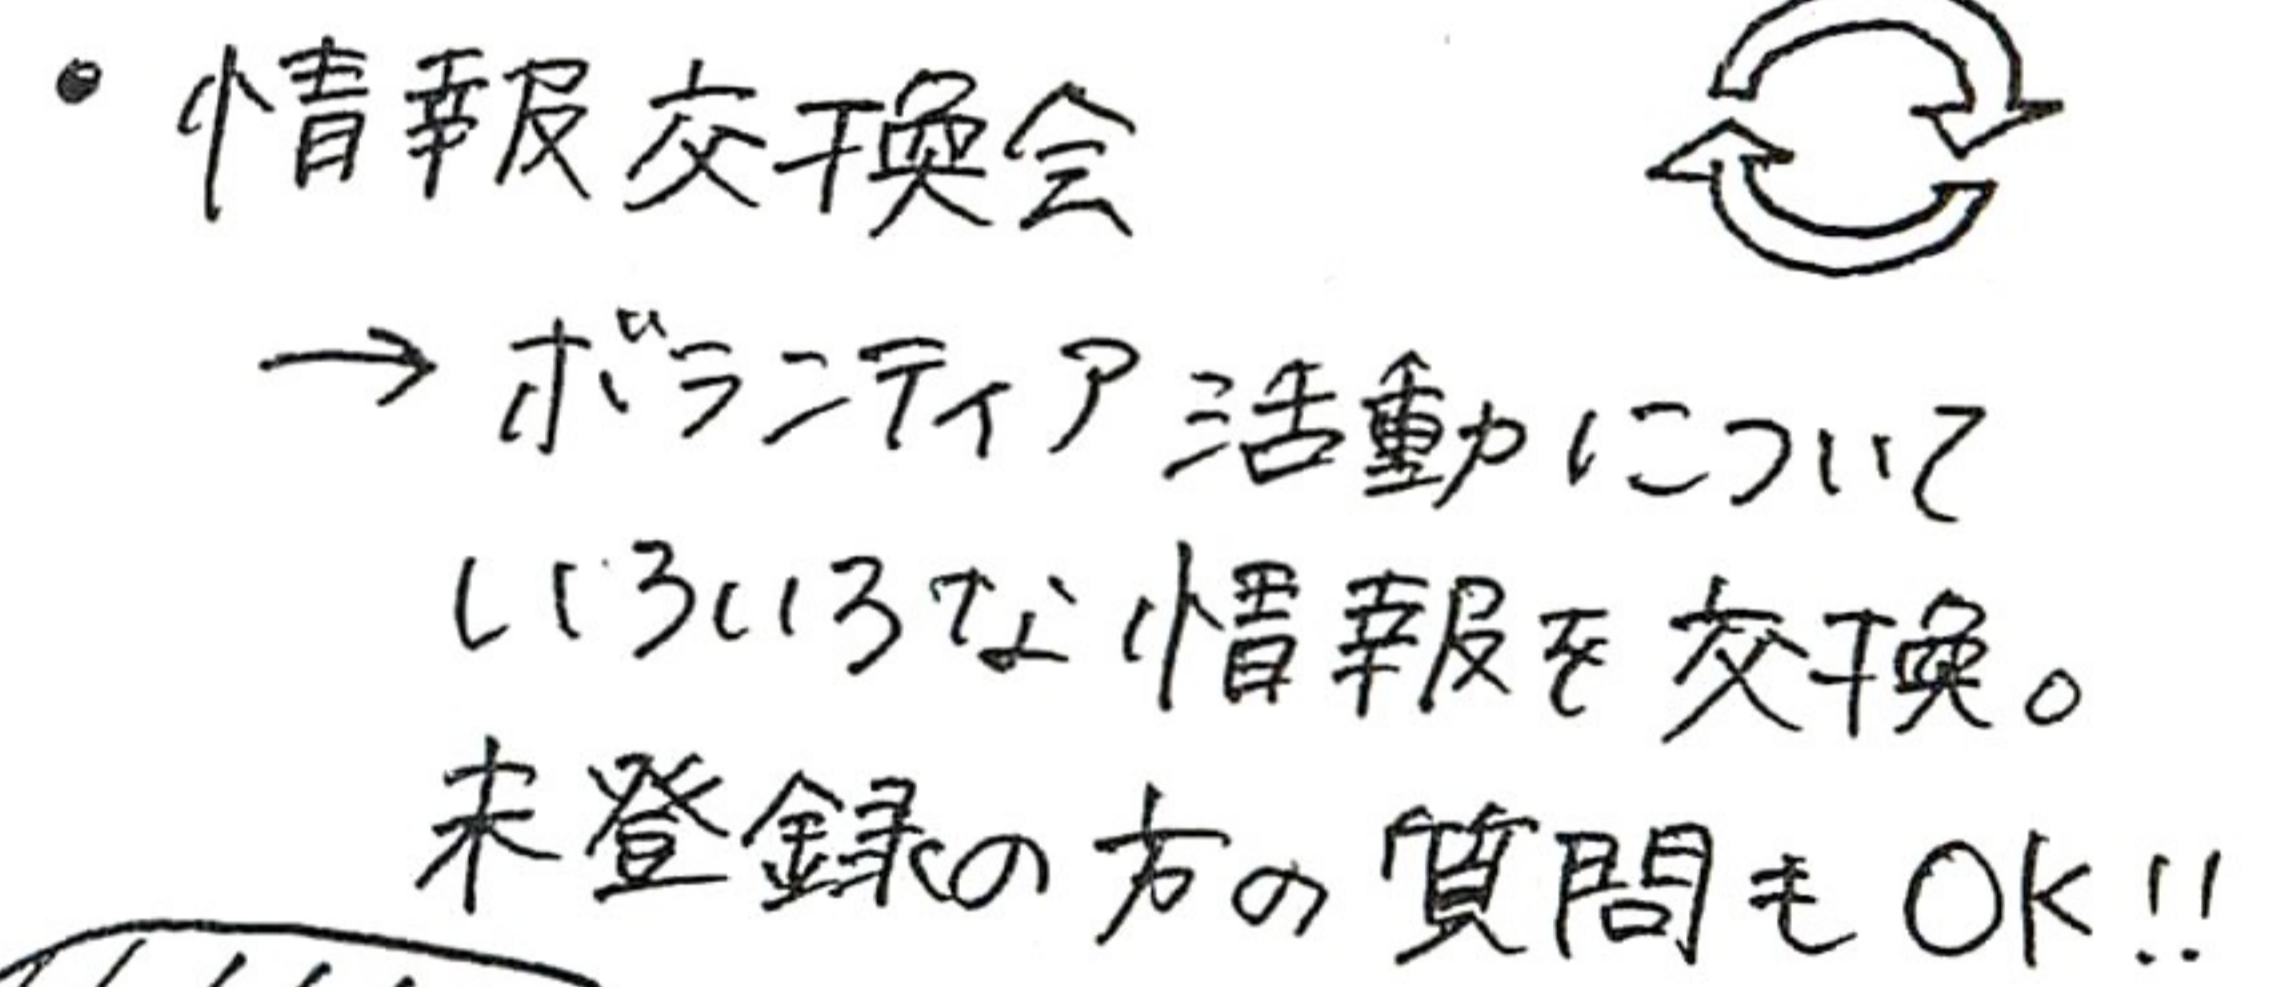 ・情報交換会
→ボランティア活動について
いろいろな情報を交換。
未登録の方の質問もOK!!